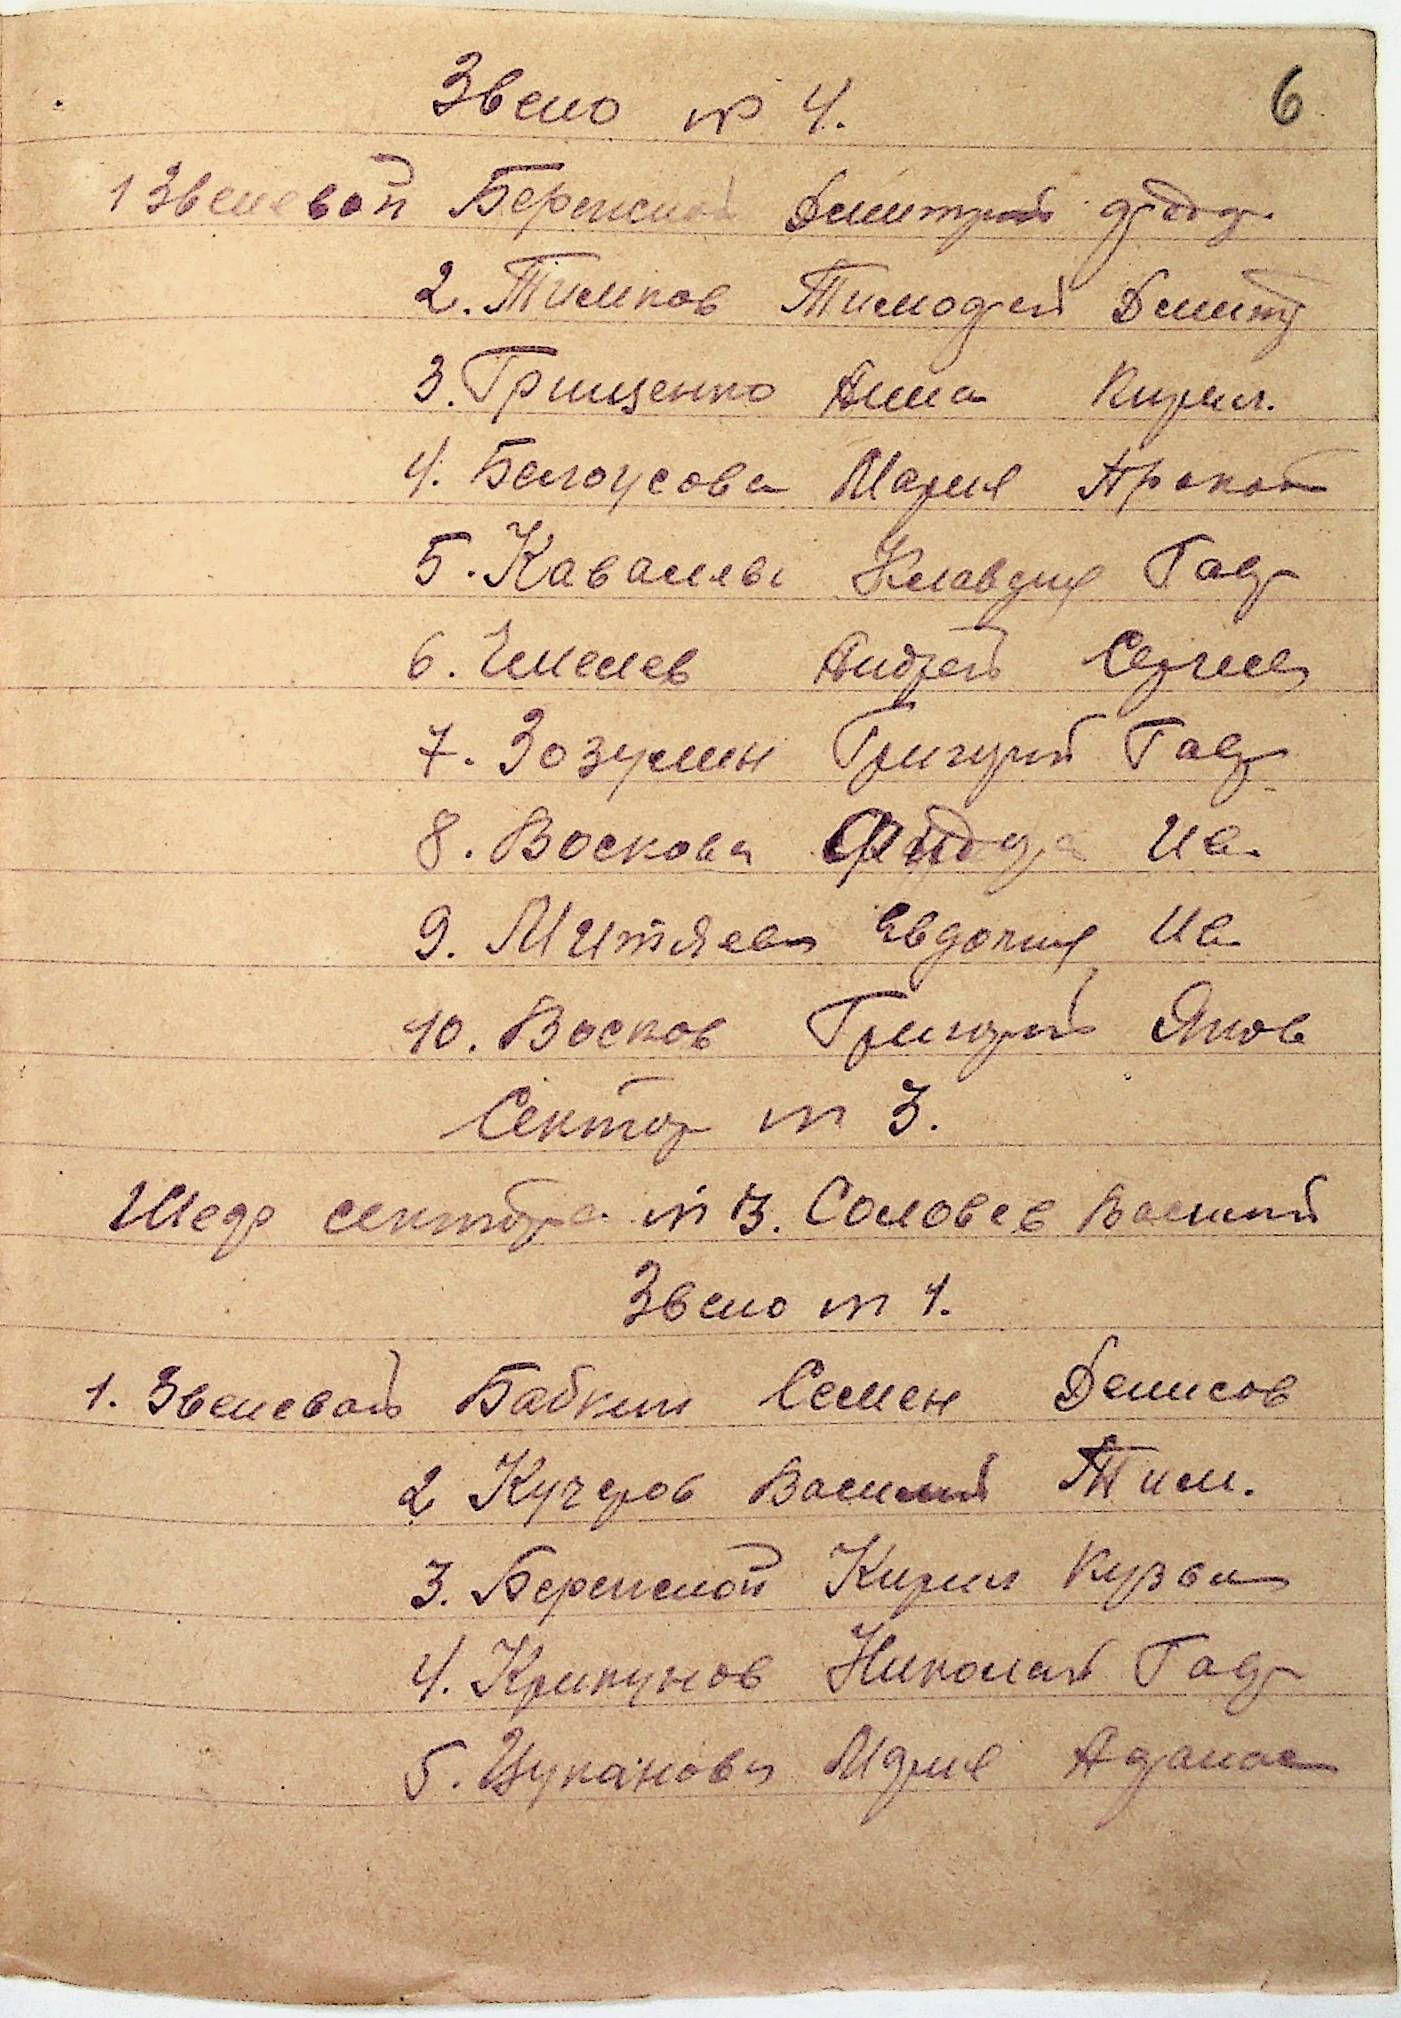 Звено № 4. 6
1 Звеневой Бережной Дмитрий
2. Тимков Тимофей Дмит
3. Грищенко Анна Кирил.
4. Белоусова Мария
5. Клавдия Гавр
6. Андрей Сергеев
7. Зозулин Григорий Гавр
8. Воскова Ив.
9. Митяева Евдокия Ив
10. Восков Григорий Яков
Сектор № 3.
Шеф сектора № 3. Соловев Василий
Звено № 1.
1. Звеневой Бабкин Семен Денисов
2 Кучеров Василий Тим.
3. Бережной Кирил Кузьм
4. Крикунов Николай Гавр
5. Цуканова Мария Афанас